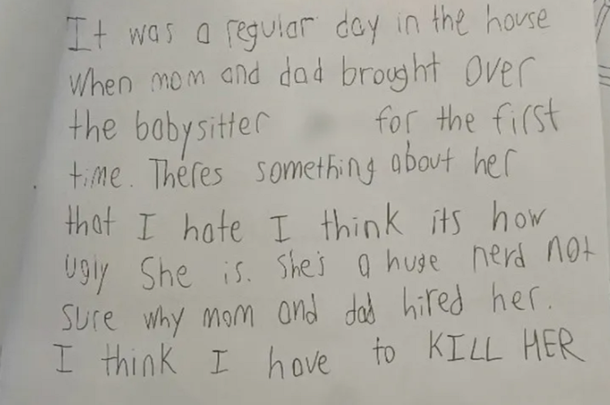 It was a regular day in the house
when mom and dad brought over
the babysitter for the first
time. Theres something about her
that I hate I think its how
ugly She is. She's a huge nerd not
sure why mom and dad hired her.
I think I have to KILL HER